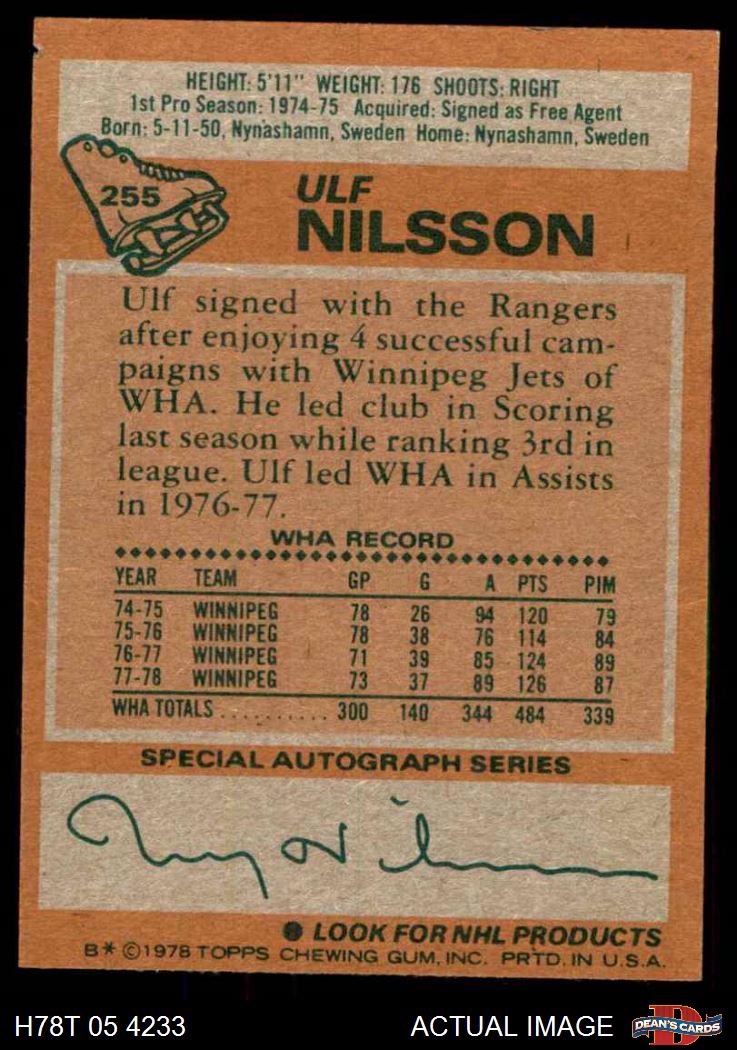 HEIGHT: 5'11" WEIGHT: 176 SHOOTS: RIGHT
1st Pro Season: 1974-75 Acquired: Signed as Free Agent
Born: 5-11-50, Nynashamn, Sweden Home: Nynashamn, Sweden
255
ULF
NILSSON
Ulf signed with the Rangers
after enjoying 4 successful cam-
paigns with Winnipeg Jets of
WHA. He led club in Scoring
last season while ranking 3rd in
league. Ulf led WHA in Assists
in 1976-77.
WHA RECORD
YEAR TEAM GP G A PTS PIM
74-75 WINNIPEG 78 26 94 120 79
75-76 WINNIPEG 78 38 76 114 84
76-77 WINNIPEG 71 39 85 124 89
77-78 WINNIPEG 73 37 89 126 87
WHA TOTALS .......... 300 140 344 484 339
SPECIAL AUTOGRAPH SERIES
LOOK FOR NHL PRODUCTS
B* ©1978 TOPPS CHEWING GUM, INC. PRTD. IN U.S.A.
H78T 05 4233 ACTUAL IMAGE DEAN'S CARDS